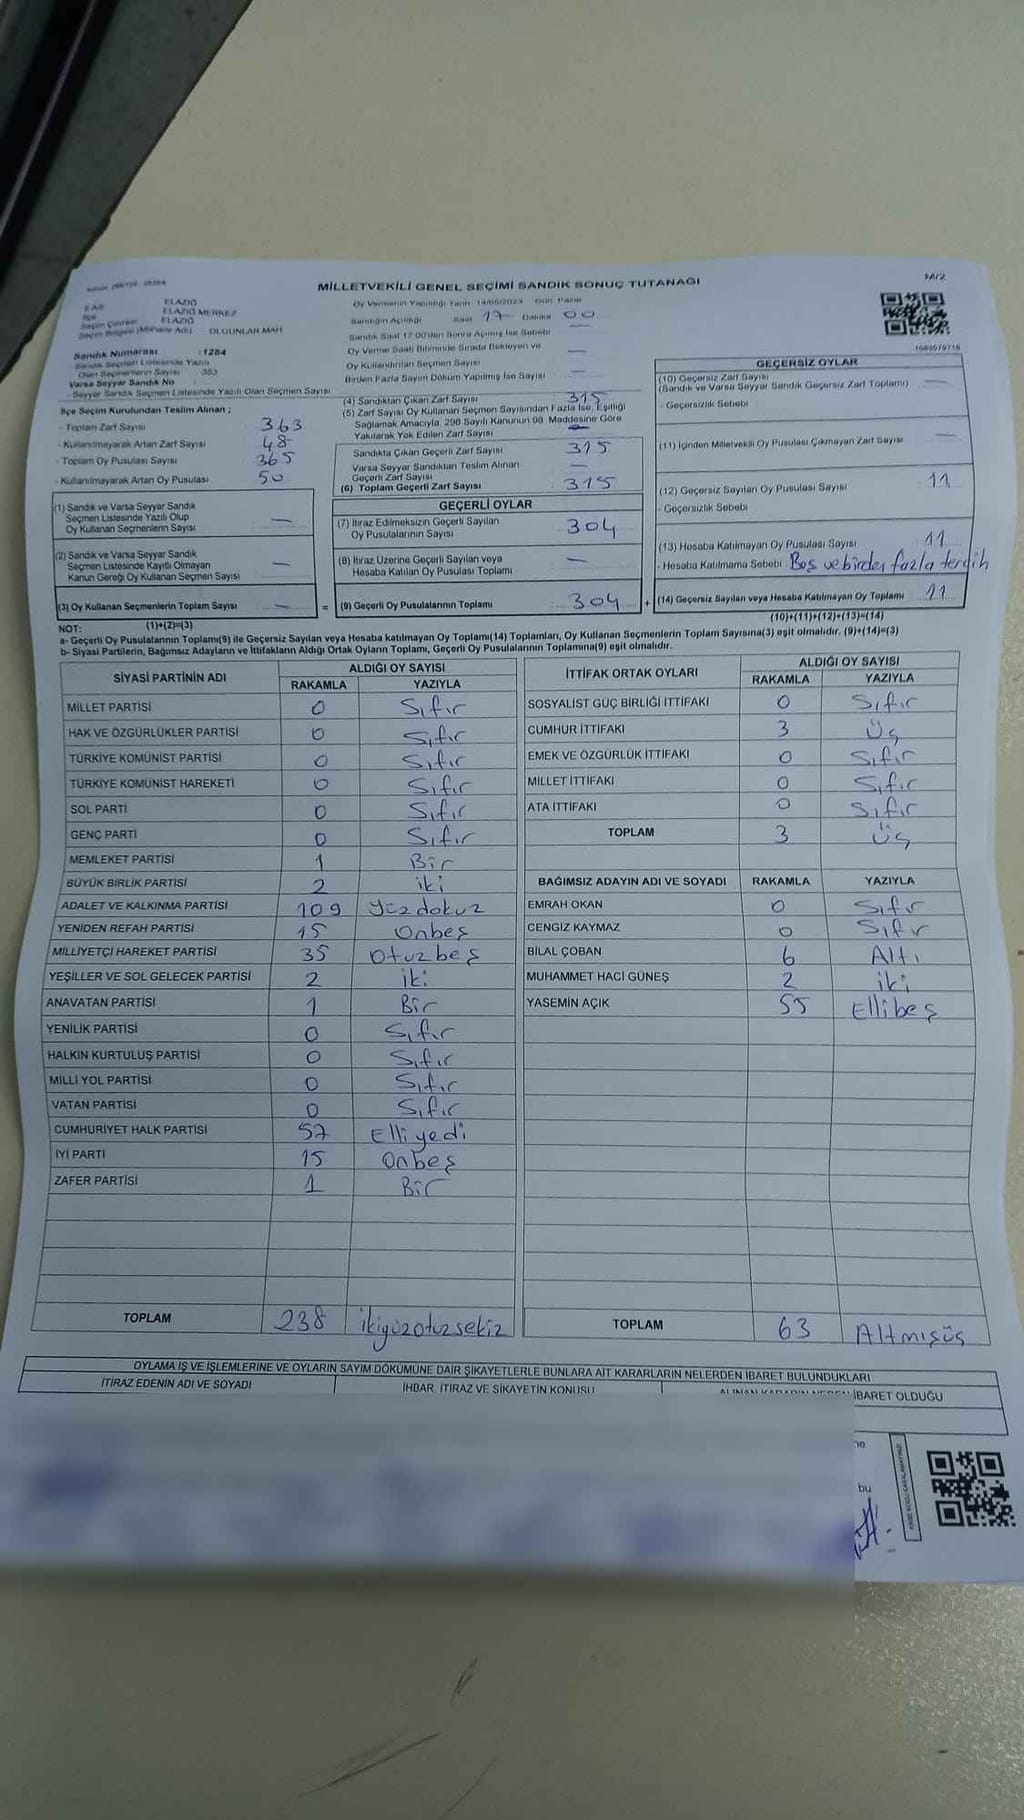 MİLLETVEKİLİ GENEL SEÇİMİ SANDIK SONUÇ TUTANAĞI
M/2
İl Adı ELAZIĞ
İlçe ELAZIĞ MERKEZ
Seçim Çevresi ELAZIĞ
Seçim Bölgesi (Mahalle Adı) : OLGUNLAR MAH
Sandık Numarası : 1284
Sandık Seçmen Listesinde Yazılı
Olan Seçmenlerin Sayısı : 353
Varsa Seyyar Sandık No
- Seyyar Sandık Seçmen Listesinde Yazılı Olan Seçmen Sayısı
İlçe Seçim Kurulundan Teslim Alınan ;
- Toplam Zarf Sayısı 363
- Kullanılmayarak Artan Zarf Sayısı 48
- Toplam Oy Pusulası Sayısı 365
- Kullanılmayarak Artan Oy Pusulası 50
(1) Sandık ve Varsa Seyyar Sandık
Seçmen Listesinde Yazılı Olup
Oy Kullanan Seçmenlerin Sayısı —
(2) Sandık ve Varsa Seyyar Sandık
Seçmen Listesinde Kayıtlı Olmayan
Kanun Gereği Oy Kullanan Seçmen Sayısı —
(3) Oy Kullanan Seçmenlerin Toplam Sayısı —
(1)+(2)=(3)
Oy Vermenin Yapıldığı Tarih 14/05/2023 Gün Pazar
Sandığın Açıldığı Saat 17 Dakika 00
Sandık Saat 17:00'den Sonra Açılmış İse Sebebi —
Oy Verme Saati Bitiminde Sırada Bekleyen ve
Oy Kullandırılan Seçmen Sayısı —
Birden Fazla Sayım Döküm Yapılmış İse Sayısı —
(4) Sandıktan Çıkan Zarf Sayısı 315
(5) Zarf Sayısı Oy Kullanan Seçmen Sayısından Fazla İse, Eşitliği
Sağlamak Amacıyla, 298 Sayılı Kanunun 98. Maddesine Göre
Yakılarak Yok Edilen Zarf Sayısı —
Sandıkta Çıkan Geçerli Zarf Sayısı 315
Varsa Seyyar Sandıktan Teslim Alınan
Geçerli Zarf Sayısı —
(6) Toplam Geçerli Zarf Sayısı 315
GEÇERLİ OYLAR
(7) İtiraz Edilmeksizin Geçerli Sayılan
Oy Pusulalarının Sayısı 304
(8) İtiraz Üzerine Geçerli Sayılan veya
Hesaba Katılan Oy Pusulası Toplamı —
= (9) Geçerli Oy Pusulalarının Toplamı 304 +
GEÇERSİZ OYLAR
(10) Geçersiz Zarf Sayısı
(Sandık ve Varsa Seyyar Sandık Geçersiz Zarf Toplamı) —
- Geçersizlik Sebebi
(11) İçinden Milletvekili Oy Pusulası Çıkmayan Zarf Sayısı —
(12) Geçersiz Sayılan Oy Pusulası Sayısı 11
- Geçersizlik Sebebi
(13) Hesaba Katılmayan Oy Pusulası Sayısı 11
- Hesaba Katılmama Sebebi Boş ve birden fazla tercih
(14) Geçersiz Sayılan veya Hesaba Katılmayan Oy Toplamı 11
(10)+(11)+(12)+(13)=(14)
NOT:
a- Geçerli Oy Pusulalarının Toplamı(9) ile Geçersiz Sayılan veya Hesaba katılmayan Oy Toplamı(14) Toplamları, Oy Kullanan Seçmenlerin Toplam Sayısına(3) eşit olmalıdır. (9)+(14)=(3)
b- Siyasi Partilerin, Bağımsız Adayların ve İttifakların Aldığı Ortak Oyların Toplamı, Geçerli Oy Pusulalarının Toplamına(9) eşit olmalıdır.
SİYASİ PARTİNİN ADI ALDIĞI OY SAYISI
RAKAMLA YAZIYLA
MİLLET PARTİSİ 0 Sıfır
HAK VE ÖZGÜRLÜKLER PARTİSİ 0 Sıfır
TÜRKİYE KOMÜNİST PARTİSİ 0 Sıfır
TÜRKİYE KOMÜNİST HAREKETİ 0 Sıfır
SOL PARTİ 0 Sıfır
GENÇ PARTİ 0 Sıfır
MEMLEKET PARTİSİ 1 Bir
BÜYÜK BİRLİK PARTİSİ 2 iki
ADALET VE KALKINMA PARTİSİ 109 Yüzdokuz
YENİDEN REFAH PARTİSİ 15 Onbeş
MİLLİYETÇİ HAREKET PARTİSİ 35 Otuzbeş
YEŞİLLER VE SOL GELECEK PARTİSİ 2 iki
ANAVATAN PARTİSİ 1 Bir
YENİLİK PARTİSİ 0 Sıfır
HALKIN KURTULUŞ PARTİSİ 0 Sıfır
MİLLİ YOL PARTİSİ 0 Sıfır
VATAN PARTİSİ 0 Sıfır
CUMHURİYET HALK PARTİSİ 57 Elliyedi
İYİ PARTİ 15 Onbeş
ZAFER PARTİSİ 1 Bir
TOPLAM 238 ikiyüzotuzsekiz
İTTİFAK ORTAK OYLARI ALDIĞI OY SAYISI
RAKAMLA YAZIYLA
SOSYALİST GÜÇ BİRLİĞİ İTTİFAKI 0 Sıfır
CUMHUR İTTİFAKI 3 Üç
EMEK VE ÖZGÜRLÜK İTTİFAKI 0 Sıfır
MİLLET İTTİFAKI 0 Sıfır
ATA İTTİFAKI 0 Sıfır
TOPLAM 3 Üç
BAĞIMSIZ ADAYIN ADI VE SOYADI RAKAMLA YAZIYLA
EMRAH OKAN 0 Sıfır
CENGİZ KAYMAZ 0 Sıfır
BİLAL ÇOBAN 6 Altı
MUHAMMET HACİ GÜNEŞ 2 iki
YASEMİN AÇIK 55 Ellibeş
TOPLAM 63 Altmışüş
OYLAMA İŞ VE İŞLEMLERİNE VE OYLARIN SAYIM DÖKÜMÜNE DAİR ŞİKAYETLERLE BUNLARA AİT KARARLARIN NELERDEN İBARET BULUNDUKLARI
İTİRAZ EDENİN ADI VE SOYADI İHBAR, İTİRAZ VE ŞİKAYETİN KONUSU ALINAN KARARIN NEDEN İBARET OLDUĞU
bu